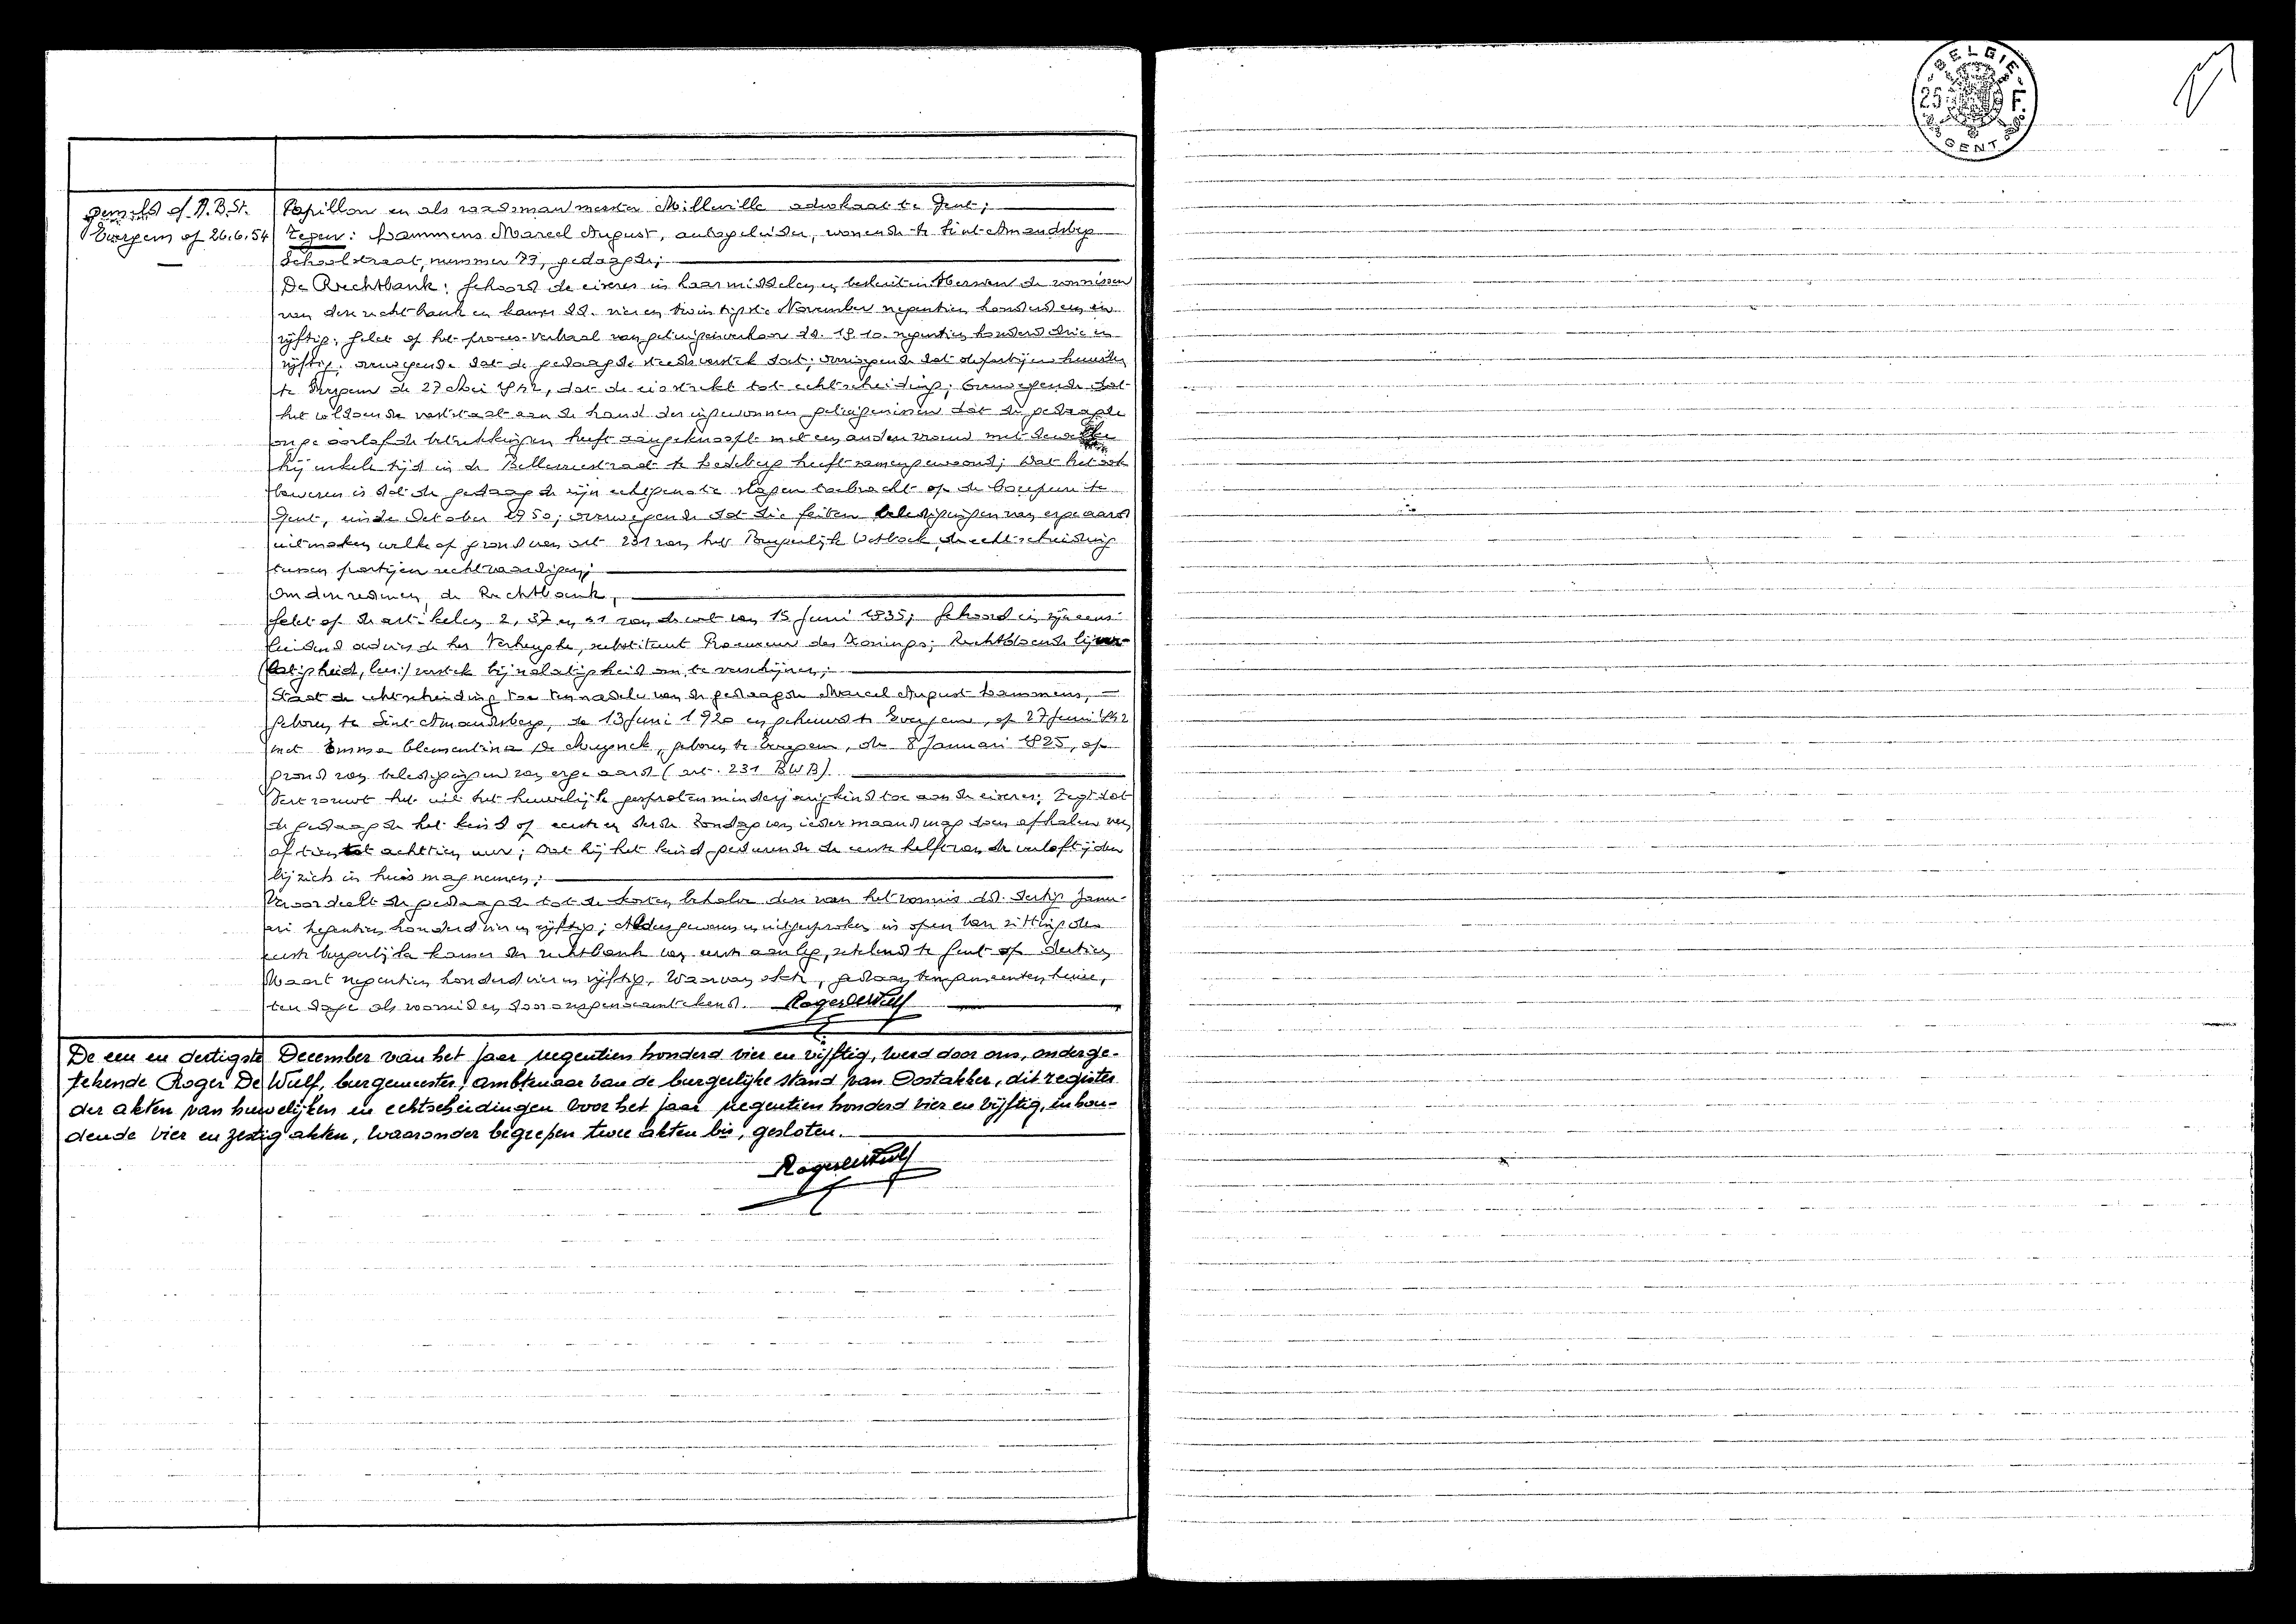 gemeld a/ A.B.St.
Evergem op 26.6.54
Papillon en als raadsman meester Milleville advokaat te Gent;
Tegen: Lammens Marcel August, autogeleider, wonende te Sint-Amandsberg
Schoolstraat, nummer 73, gedaagde;
De Rechtbank: Gehoord de eiseres in haar middelen en besluiten; Herzien de vonnissen
van deze rechtbank en kamer dd. vier en twintigste November negentien honderd een en
vijftig; Gelet op het proces-verbaal van getuigenverhoor dd. 19.10. negentien honderd drie en
vijftig; overwegende dat de gedaagde steeds verstek laat; overwegende dat de partijen huwden
te Evergem de 27 Mei 1942, dat de eis strekt tot echtscheiding; Overwegende dat
het voldoende vaststaat aan de hand der ingewonnen getuigenissen dat de gedaagde
ongeoorloofde betrekkingen heeft aangeknoopt met een andere vrouw met dewelke
hij enkele tijd in de Bellevuestraat te Ledeberg heeft samengewoond; Dat het ook
bewezen is dat de gedaagde zijn echtgenote slagen toebracht op de Coupure te
Gent, einde October 1950; overwegende dat die feiten beledigingen van erge aard
uitmaken welke op grond van art. 231 van het Burgerlijk Wetboek, de echtscheiding
tussen partijen rechtvaardigen;
Om deze redenen, de Rechtbank,
Gelet op de artikelen 2, 37 en 41 van de wet van 15 Juni 1935; Gehoord in zijn eens-
luidend advies de heer Verheyghe, substituut Procureur des Konings; Rechtdoende bij ver-
(latigheid, lees:) verstek bij nalatigheid om te verschijnen;
Staat de echtscheiding toe ten nadele van de gedaagde Marcel August Lammens,
geboren te Sint-Amandsberg, de 13 Juni 1920 en gehuwd te Evergem, op 27 Juni 1942
met Emma Clementina De Muynck, geboren te Evergem, de 8 Januari 1925, op
grond van beledigingen van erge aard (art. 231 BWB)
Vertrouwt het uit het huwelijk gesproten minderjarig kind toe aan de eiseres; Zegt dat
de gedaagde het kind op eerste en derde Zondag van ieder maand mag doen afhalen van
af tien tot achttien uur; dat hij het kind gedurende de eerste helft van de verloftijden
bij zich in huis mag nemen;
Veroordeelt de gedaagde tot de kosten behalve deze van het vonnis dd. dertig Janu-
ari negentien honderd vier en vijftig; Aldus gewezen en uitgesproken in openbare zitting der
eerste burgerlijke kamer der rechtbank van eerste aanleg, zetelend te Gent op dertien
Maart negentien honderd vier en vijftig. Waarvan akte, gedaan ten gemeentenhuize,
ten dage als voormeld en door ons genaamtekend. Roger De Wulf
De een en dertigste December van het jaar negentien honderd vier en vijftig, werd door ons, onderge-
tekende Roger De Wulf, burgemeester, ambtenaar van de burgerlijke stand van Oostakker, dit register
der akten van huwelijken en echtscheidingen voor het jaar negentien honderd vier en vijftig, inhou-
dende vier en zestig akten, waaronder begrepen twee akten bis, gesloten.
Roger De Wulf
BELGIE
25 F.
GENT